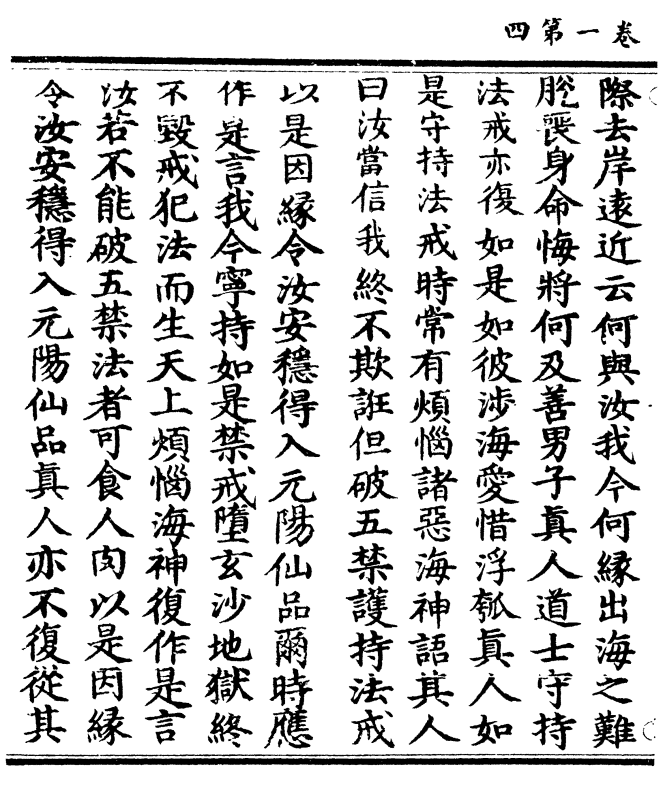 卷一第四
際去岸遠近云何與汝我今何縁出海之難
脫喪身命悔將何及善男子真人道士守持
法戒亦復如是如彼渉海愛惜浮瓠真人如
是守持法戒時常有煩惱諸惡海神語其人
曰汝當信我終不欺誑但破五禁護持法戒
以是因縁令汝安穩得入元陽仙品爾時應
作是言我今寧持如是禁戒墮玄沙地獄終
不毀戒犯法而生天上煩惱海神復作是言
汝若不能破五禁法者可食人肉以是因縁
令汝安穩得入元陽仙品真人亦不復從其